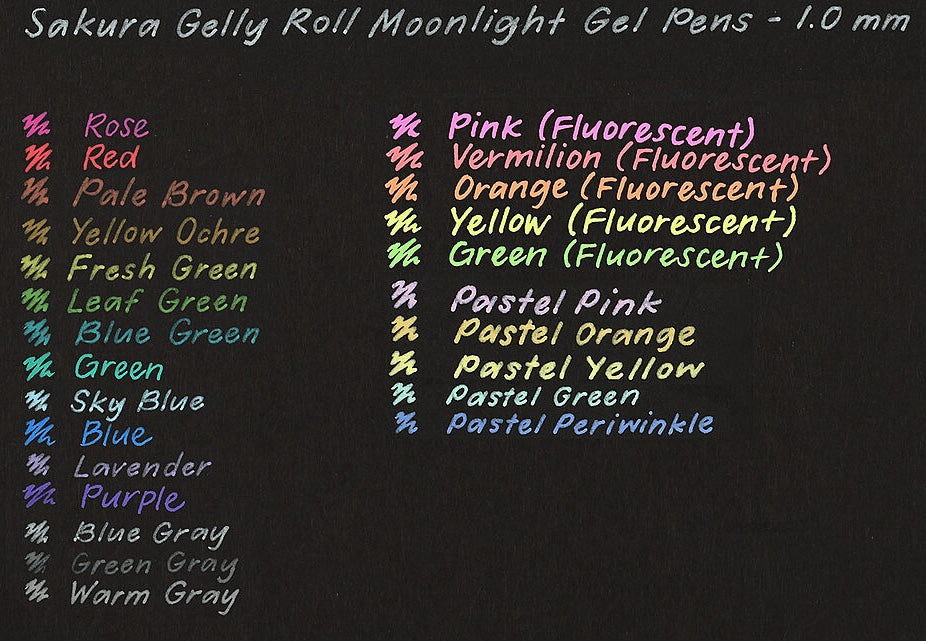 Sakura Gelly Roll Moonlight Gel Pens - 1.0 mm
Rose
Red
Pale Brown
Yellow Ochre
Fresh Green
Leaf Green
Blue Green
Green
Sky Blue
Blue
Lavender
Purple
Blue Gray
Green Gray
Warm Gray
Pink (Fluorescent)
Vermilion (Fluorescent)
Orange (Fluorescent)
Yellow (Fluorescent)
Green (Fluorescent)
Pastel Pink
Pastel Orange
Pastel Yellow
Pastel Green
Pastel Periwinkle